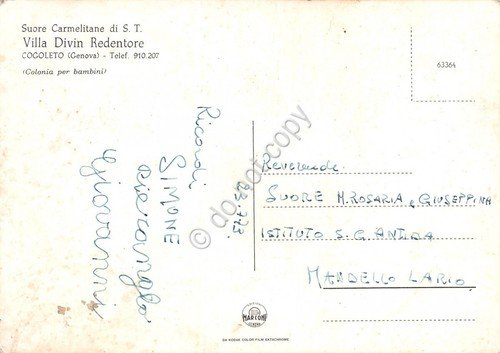 Suore Carmelitane di S. T.
Villa Divin Redentore
COGOLETO (Genova) - Telef. 910.207
(Colonia per bambini)
63364
Ricordi
22.7.73
SIMONE
Piercarlo
Giovanni
Reverende
SUORE M. ROSARIA e GIUSEPPINA
ISTITUTO S. G. ANTIDA
MANDELLO LARIO
MARCONI
GENOVA
DA KODAK COLOR-FILM EKTACHROME
© do not copy